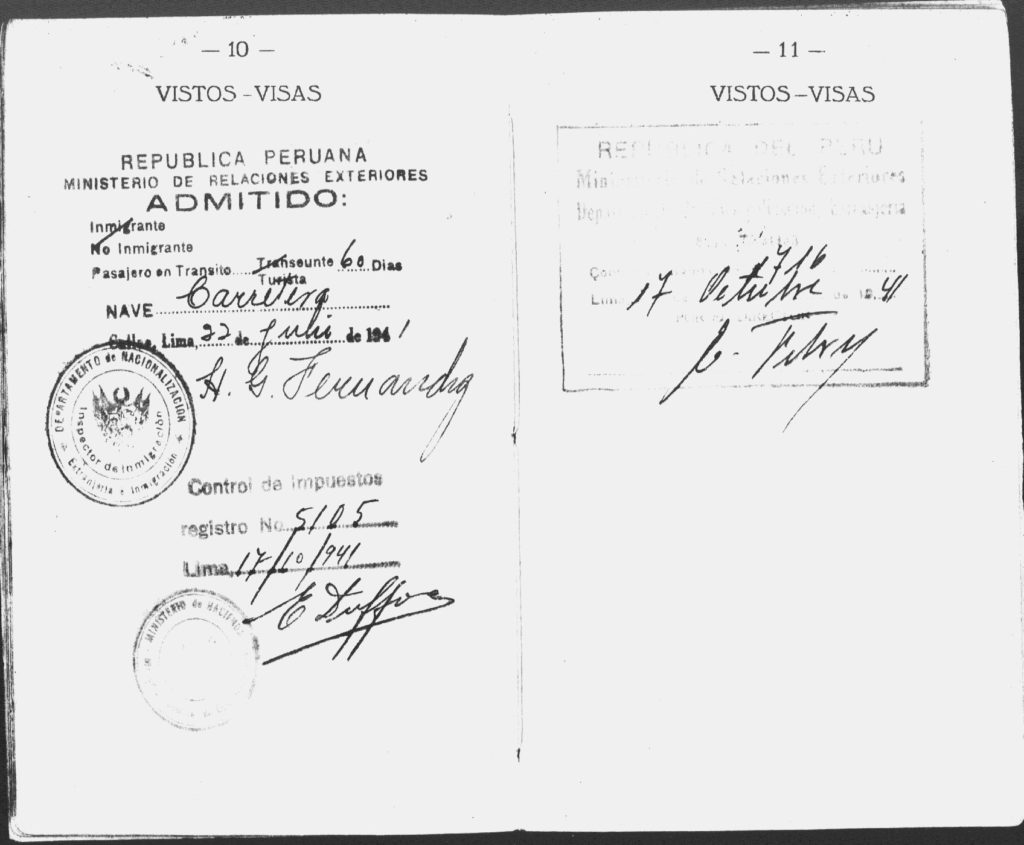 — 10 —
VISTOS-VISAS
REPUBLICA PERUANA
MINISTERIO DE RELACIONES EXTERIORES
ADMITIDO:
Inmigrante
No Inmigrante
Pasajero en Transito....Transeunte 60 Dias
Turista
NAVE Carretera
Callao, Lima, 22 de Julio de 1941
H. G.
DEPARTAMENTO de NACIONALIZACIÓN
Inspector de Inmigración
Extranjeria e Inmigración
Control de Impuestos
registro No. 5105
Lima, 17/10/941
E
MINISTERIO de HACIENDA
— 11 —
VISTOS-VISAS
REPUBLICA DEL PERU
Ministerio de Relaciones Exteriores
Extranjeria
1716
Lima 17 Octubre de 1941